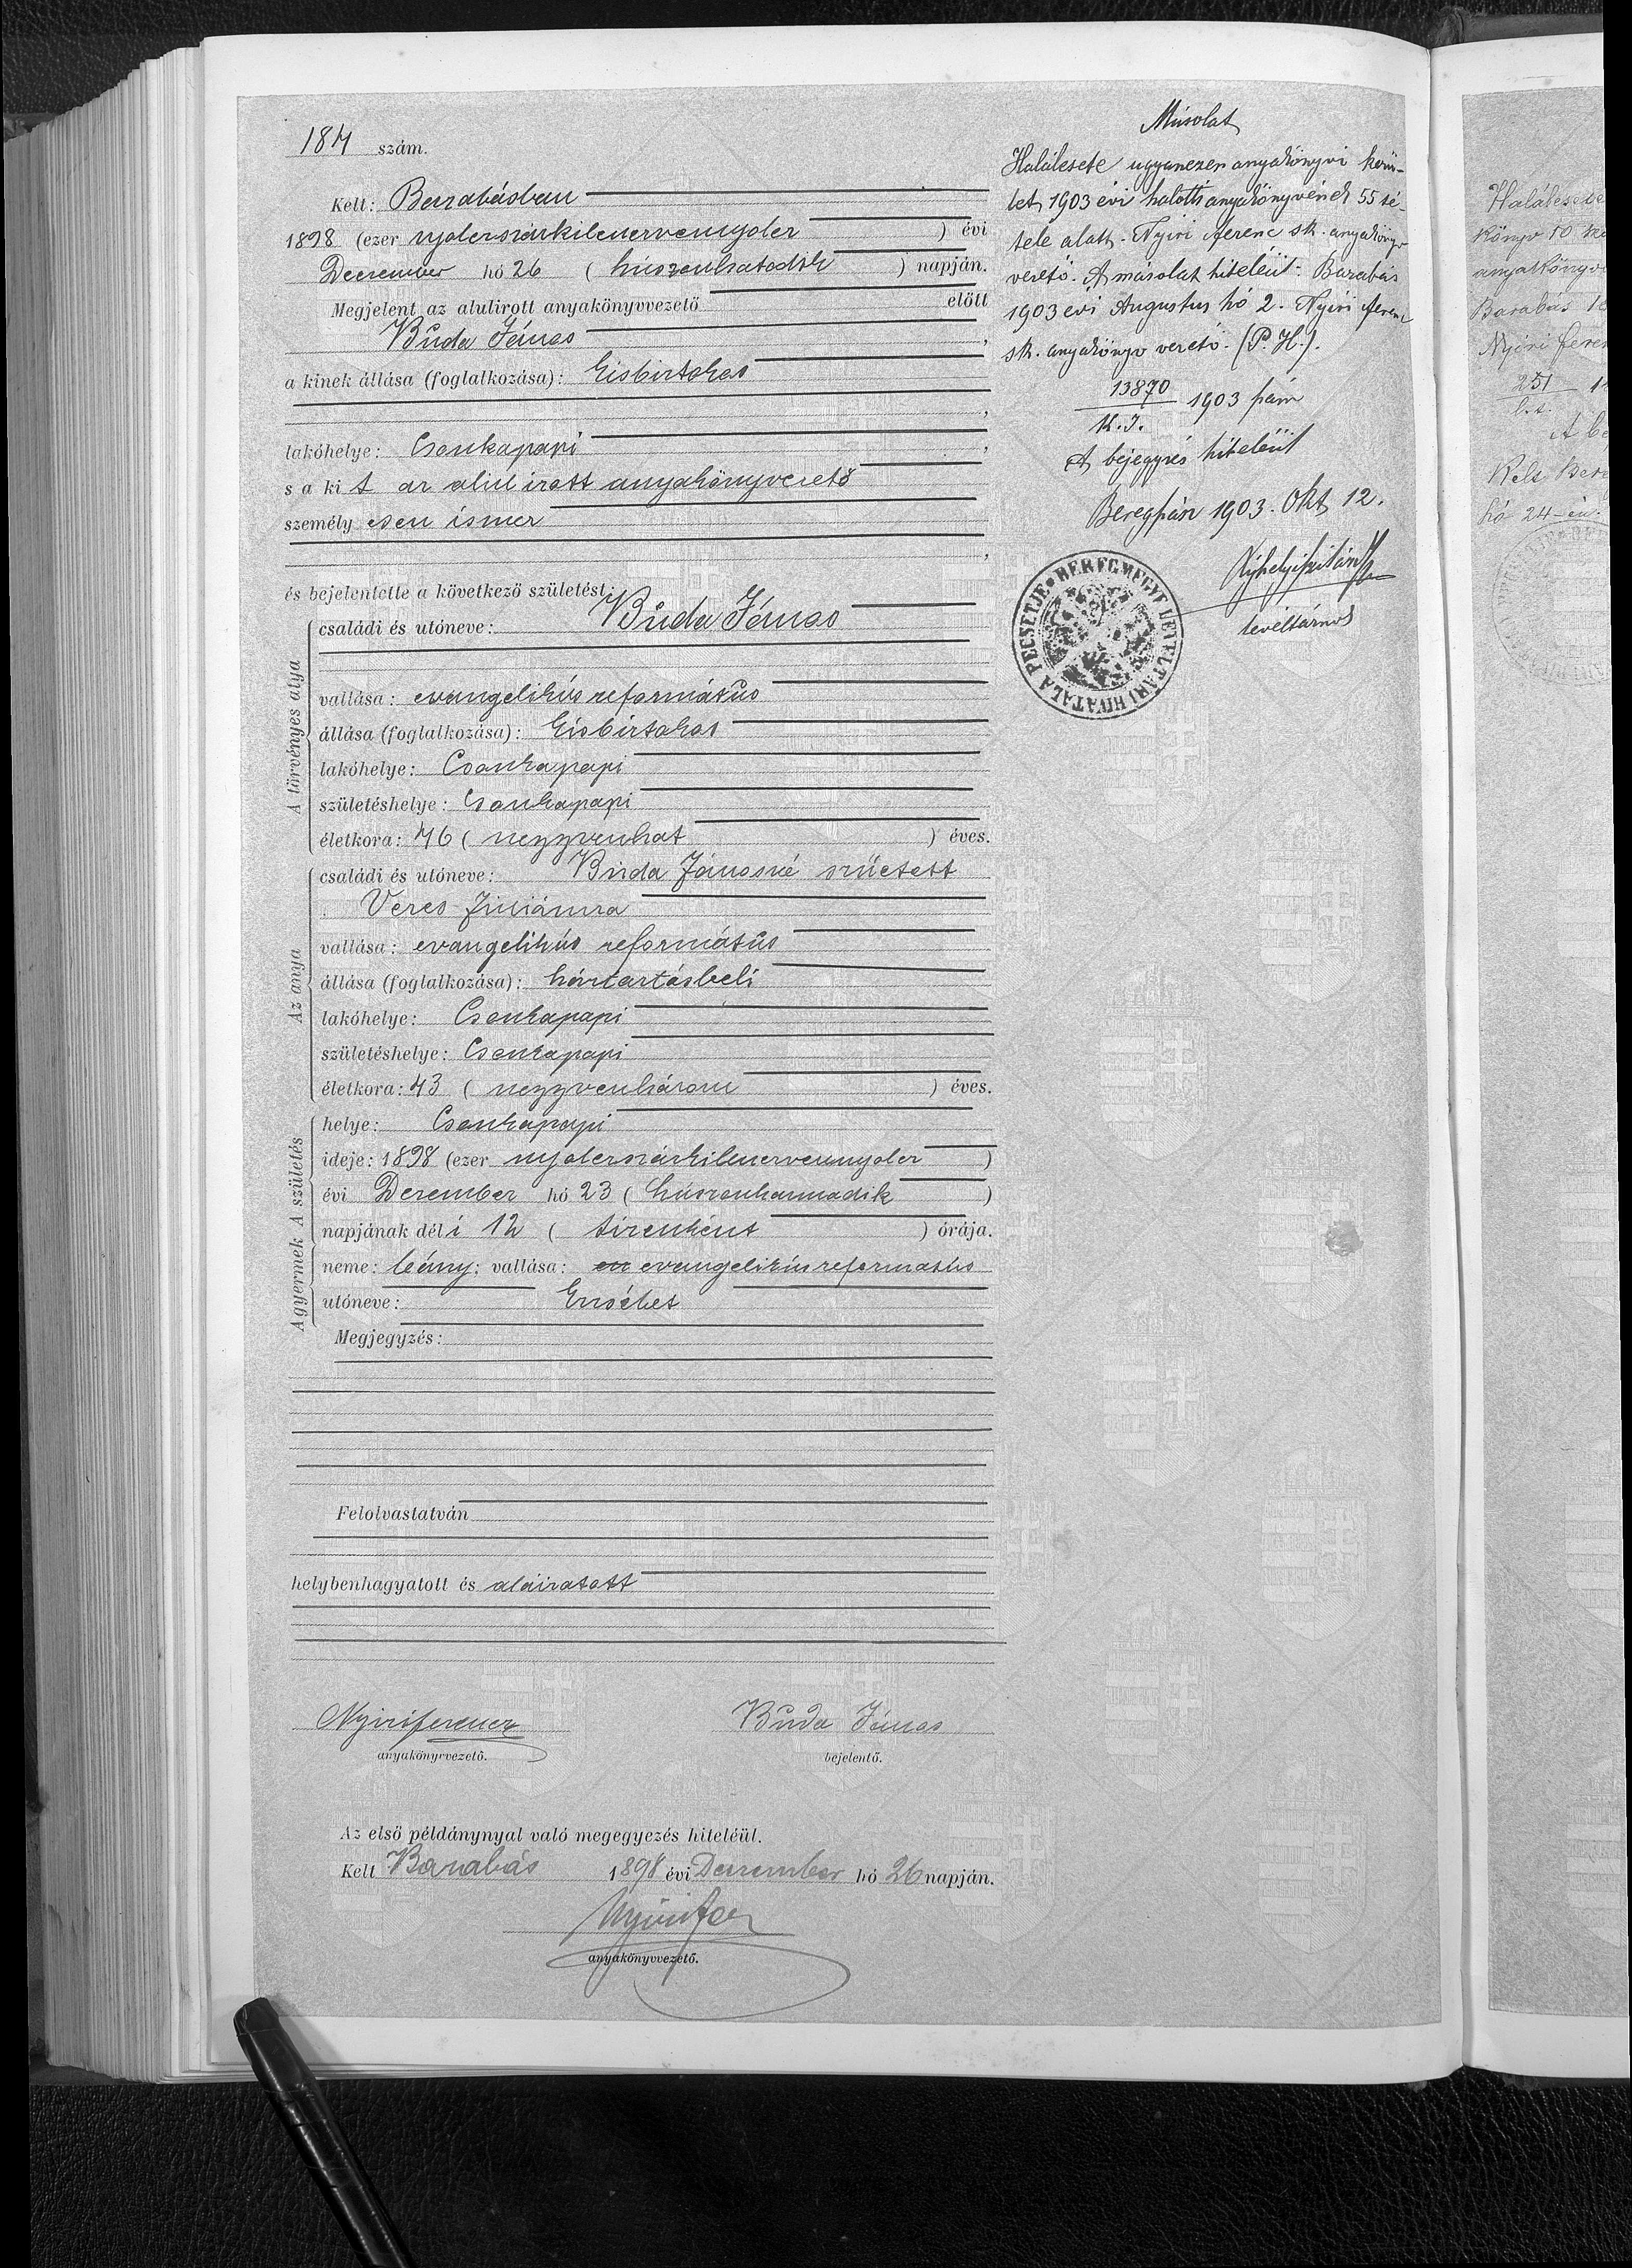 184 szám.
Kelt: Barabásban
1898 (ezer nyolcszázkilencvennyolcz) évi
Deczember hó 26 (huszonhatodik) napján.
Megjelent az alulirott anyakönyvvezető előtt
Buda János,
a kinek állása (foglalkozása): kisbirtokos
lakóhelye: Csonkapapi,
s a kit az alul irott anyakönyvvezető
személyesen ismer
és bejelentette a következő születést:
A törvényes atya
családi és utóneve: Buda János
vallása: evangelikús református
állása (foglalkozása): kisbirtokos
lakóhelye: Csonkapapi
születéshelye: Csonkapapi
életkora: 46 (negyvenhat) éves.
Az anya
családi és utóneve: Buda Jánosné született
Veres Juliánna
vallása: evangelikús református
állása (foglalkozása): háztartásbeli
lakóhelye: Csonkapapi
születéshelye: Csonkapapi
életkora: 43 (negyvenhárom) éves.
A születés
helye: Csonkapapi
ideje: 1898 (ezer nyolczszázkilenczvennyolcz)
évi Deczember hó 23 (huszonharmadik)
napjának déli 12 (tizenkét) órája.
A gyermek
neme: leány; vallása: evangelikús református
utóneve: Erzsébet
Megjegyzés:
Felolvastatván
helybenhagyatott és aláiratott
Nyiri Ferencz
anyakönyvvezető.
Buda János
bejelentő.
Az első példánynyal való megegyezés hiteléül.
Kelt Barabás 1898 évi Deczember hó 26 napján.
Nyiri Fer
anyakönyvvezető.
Másolat
Halálesete ugyanezen anyakönyvi kerü-
let 1903 évi halotti anyakönyvének 55 té-
tele alatt. Nyiri Ferenc sk. anyakönyv
vezető. A másolat hiteléül. Barabás
1903 évi Augustus hó 2. Nyiri Ferenc
sk. anyakönyv vezető. (P. H.).
13870
K. I. 1903 szám
A bejegyzés hiteléül
Beregszász 1903. Okt 12.
levéltárnok
BEREGMEGYE LEVÉLTÁRI HIVATALA PECSÉTJE
Halálesete
könyv 10
anyakönyv
Barabás
Nyiri Feren
251
Kelt Bere
hó 24-én.